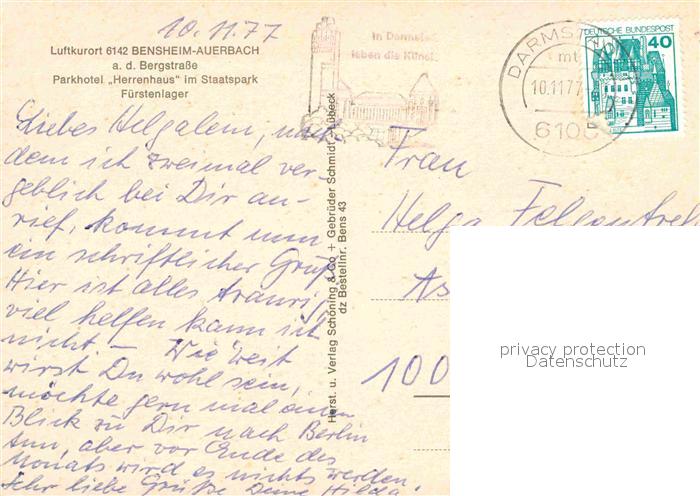 10.11.77
Luftkurort 6142 BENSHEIM-AUERBACH
a. d. Bergstraße
Parkhotel „Herrenhaus" im Staatspark
Fürstenlager
Liebes Helgalein, nach-
dem ich zweimal ver-
geblich bei Dir an-
rief, kommt nun
ein schriftlicher Gruß.
Hier ist alles traurig,
viel helfen kann ich
nicht — Wie weit
wirst Du wohl sein,
möchte gern mal einen
Blick zu Dir nach Berlin
tun, aber vor Ende des
Monats wird es nichts werden.
Sehr liebe Grüße Deine Hilda
Herst. u. Verlag Schöning & Co + Gebrüder Schmidt - Lübeck
dz Bestellnr. Bens 43
In Darmstadt
leben die Künste
DARMSTADT
10.11.77
6100
DEUTSCHE BUNDESPOST
40
Frau
Helga
As
100
privacy protection
Datenschutz